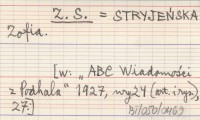 Z. S. = STRYJEŃSKA
Zofia.
[w: „ABC Wiadomości
z Podhala" 1927, wyż4 (art. i rys.),
27.]
BJ/050/0469